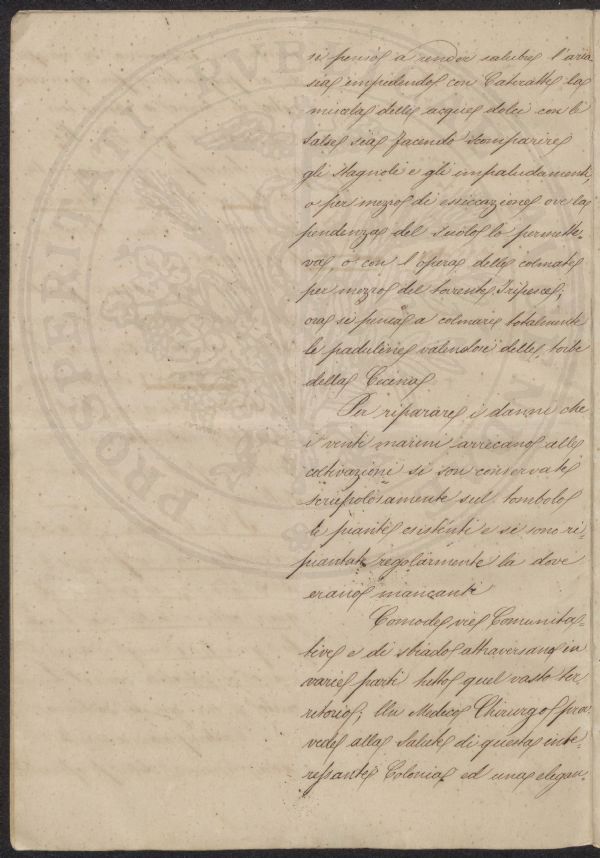 si pensò a render salubre l'aria
sia impedendo con Cateratte la
miscela delle acque dolci con le
salse sia facendo scomparire
gli stagnoli e gli impaludamenti,
o per mezzo di essiccazione ove la
pendenza del suolo lo permette-
va, o con l'opera delle colmate
per mezzo del torrente Tripesce;
ora si pensa a colmare totalmente
le paduline valendosi delle torbe
della Cecina
Per riparare i danni che
i venti marini arrecano alle
coltivazioni si son conservate
scrupolosamente sul tombolo
le piante esistenti e si sono ri-
piantate regolarmente la dove
erano mancanti
Comode vie Comunita-
tive e di stradoo attraversano in
varie parti tutto quel vasto ter-
ritorio; Un Medico Chirurgo prov-
vede alla salute di questa inte-
ressante Colonia ed una elegan-
PROSPERITATI PVBLICAE